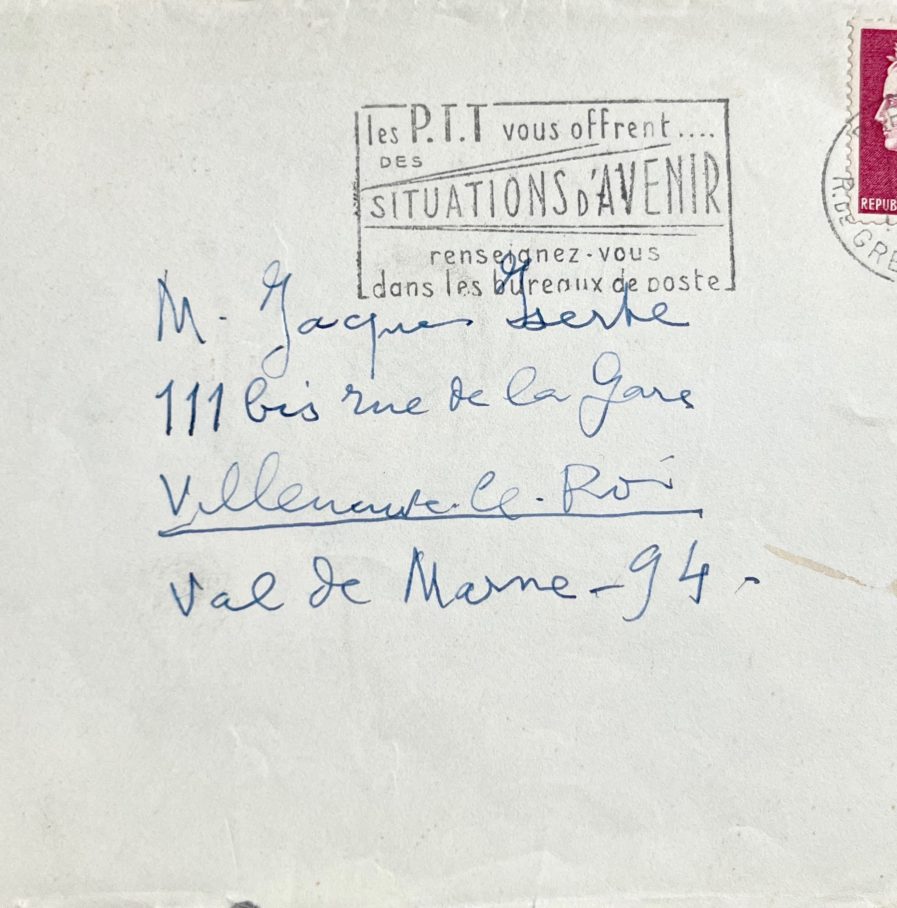 les P.T.T vous offrent....
DES
SITUATIONS D'AVENIR
renseignez-vous
dans les bureaux de poste
REPUB
R. DE GRE
M. Jacques
111 bis rue de la Gare
Villeneuve-le-Roi
Val de Marne - 94 -